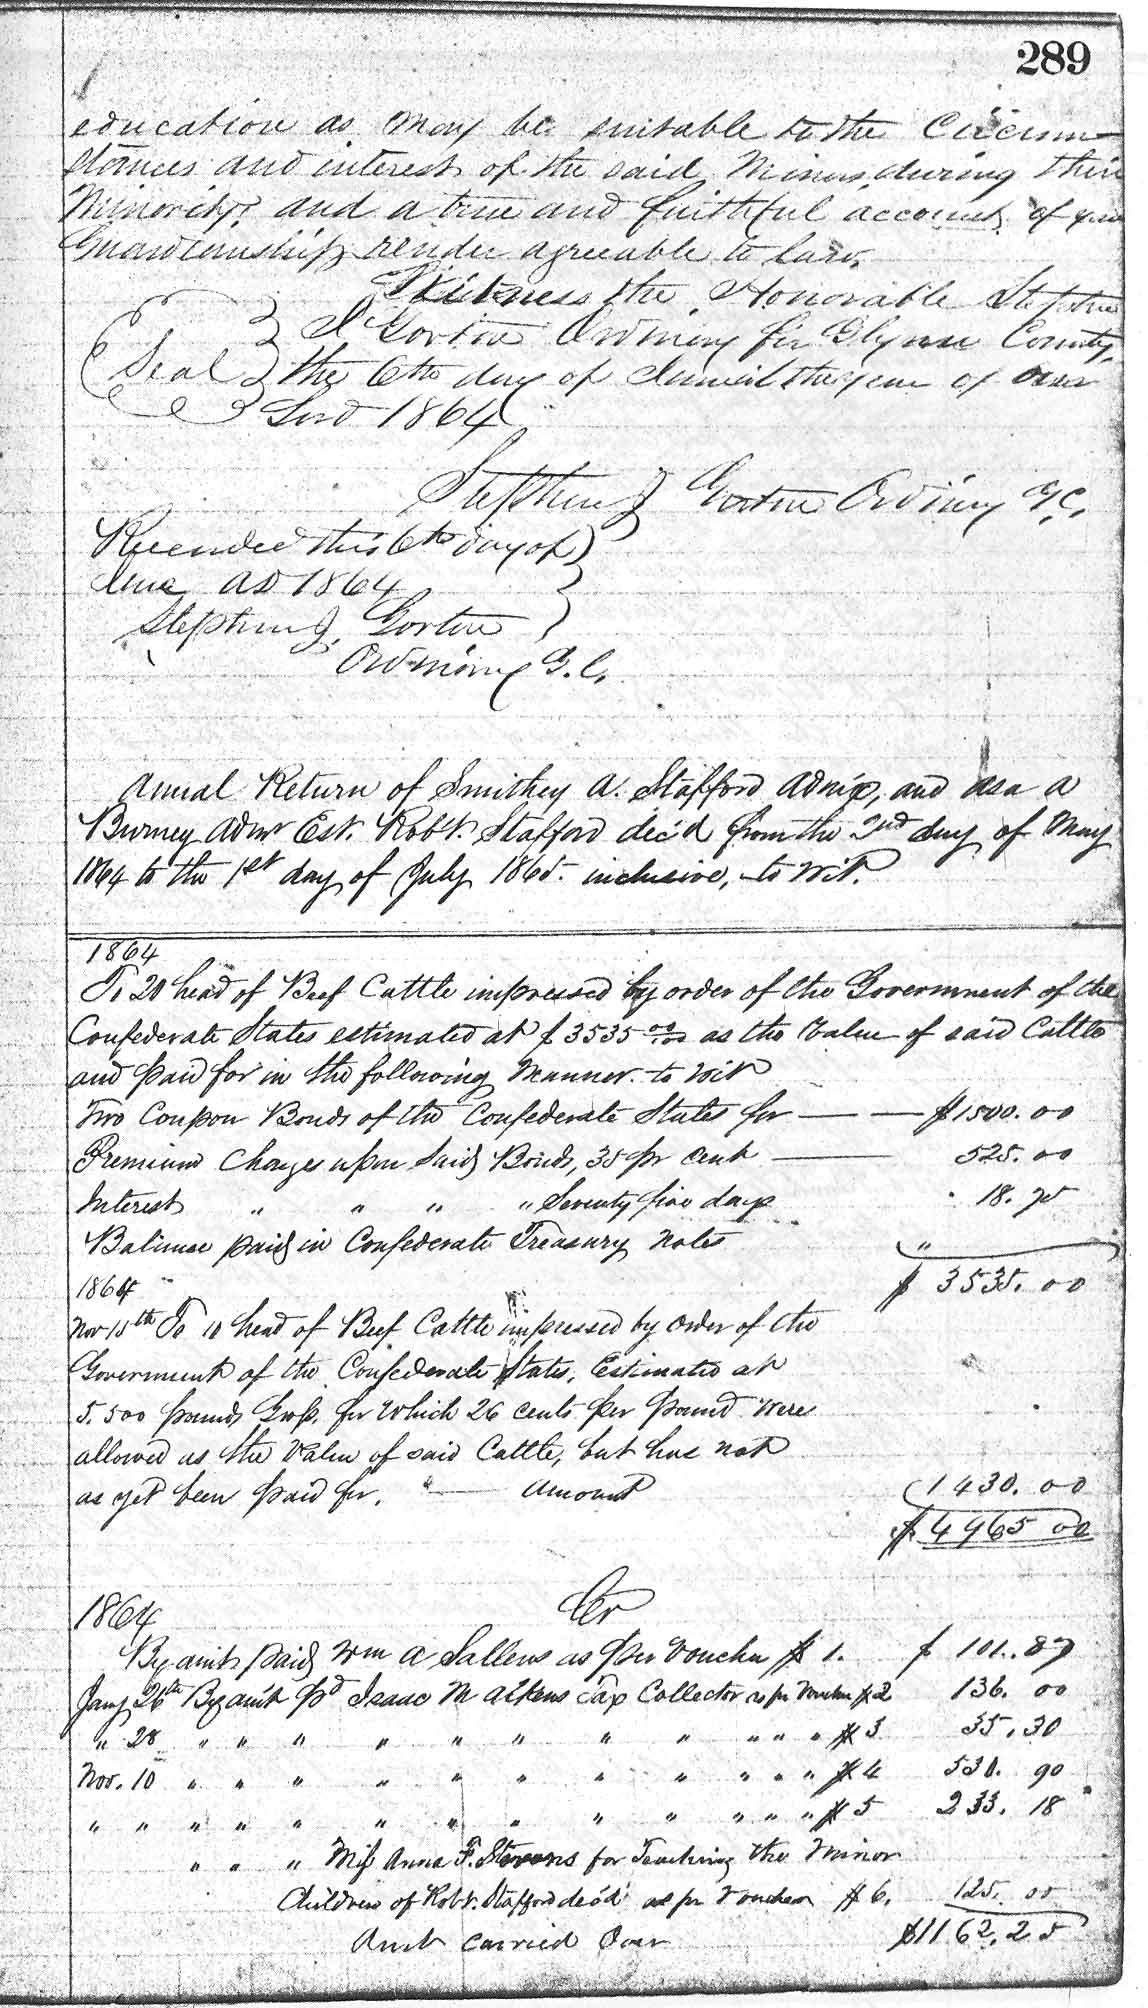 289
education as may be suitable to the Circum-
stances and interest of the said Minors, during their
Minority, and a true and faithful account of your
Guardianship render agreeable to law.
Witness the Honorable Stephen
J Gorton Ordinary for Glynn County,
Seal the 6th day of June in the year of our
Lord 1864
Stephen J Gorton Ordinary G.C.
Recorded this 6th day of
June AD 1864
Stephen J. Gorton
Ordinary G.C.
Annual Return of Smithey A. Stafford Admix, and Asa A
Burney Admr Est. Robt. Stafford dec'd from the 2nd day of May
1864 to the 1st day of July 1865. inclusive, to wit.
1864
To 20 head of Beef Cattle impressed by order of the Government of the
Confederate States estimated at $3535 00/100 as the value of said Cattle
and paid for in the following manner. to wit
Two Coupon Bonds of the Confederate States for — — $1500.00
Premium Charges upon said Bonds, 35 pr cent — 525.00
Interest " " " " Seventy five days 18.75
Balance paid in Confederate Treasury Notes "
1864 $ 3535.00
Nov 15th To 10 head of Beef Cattle impressed by order of the
Government of the Confederate States, Estimated at
5.500 pounds for which 26 cents per pound were
allowed as the value of said Cattle, but has not
as yet been paid for. — Amount 1430.00
$4965 00
1864 Cr
By amt paid Wm A Sallens as per Voucher # 1. $ 101.87
Jany 26th By amt pd Isaac M Aikens Tax Collector as pr Voucher #2 136.00
" 28 " " " " " " " " " " " #3 35.30
Nov. 10 " " " " " " " " " " " #4 530.90
" " " " " " " " " " " " #5 233.18
" " " Miss Anna F. Stevens for Teaching the Minor
Children of Robt. Stafford dec'd as pr Voucher # 6. 125.00
Amt carried Over $1162.25